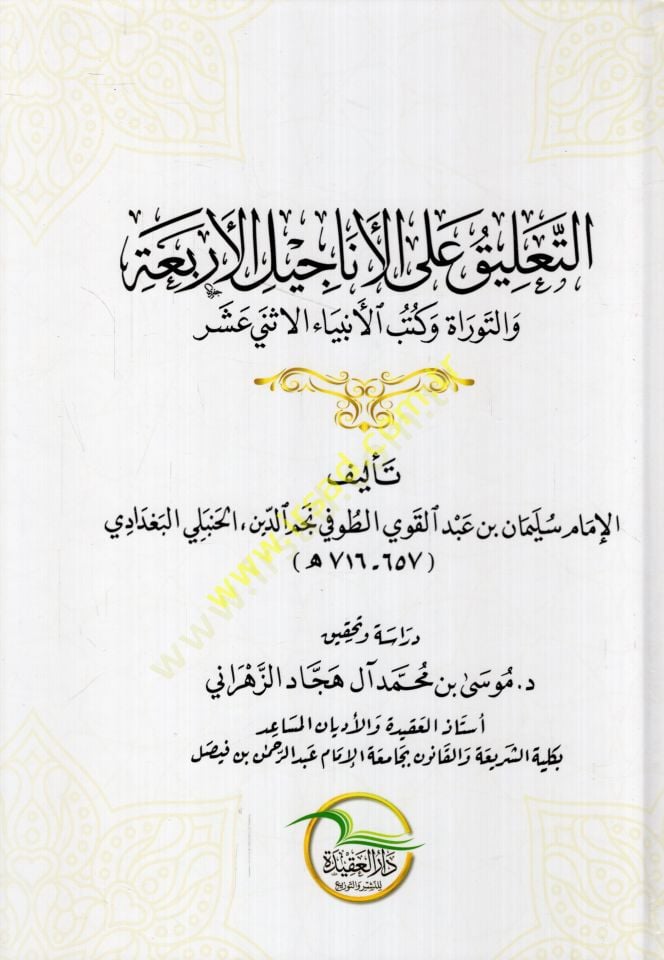 التَّعلِيقُ عَلى الأَنَاجِيْلِ الأَرْبَعَةِ
وَالتَوراة وَكُتُب الأَنبيَاء الاثنَي عَشَر
تَأليف
الإمَام سُليمَان بن عَبْد القَوي الطُوفي نَجم الدّين ، الحَنبَلي البَغدَادي
(٦٥٧ - ٧١٦ هـ)
دراسَة وتحقيق
د. مُوسَىٰ بن مُحَمَّد آل هَجَّاد الزَّهْرَاني
أستاذ العَقيدة وَالأديان المسَاعِد
بكلية الشريعَة وَالقَانون بجَامعَة الإمَام عَبد الرَّحمٰن بن فَيصَل
دَارُ العَقِيْدَة
للنشر والتوزيع
www.icsad.com.tr